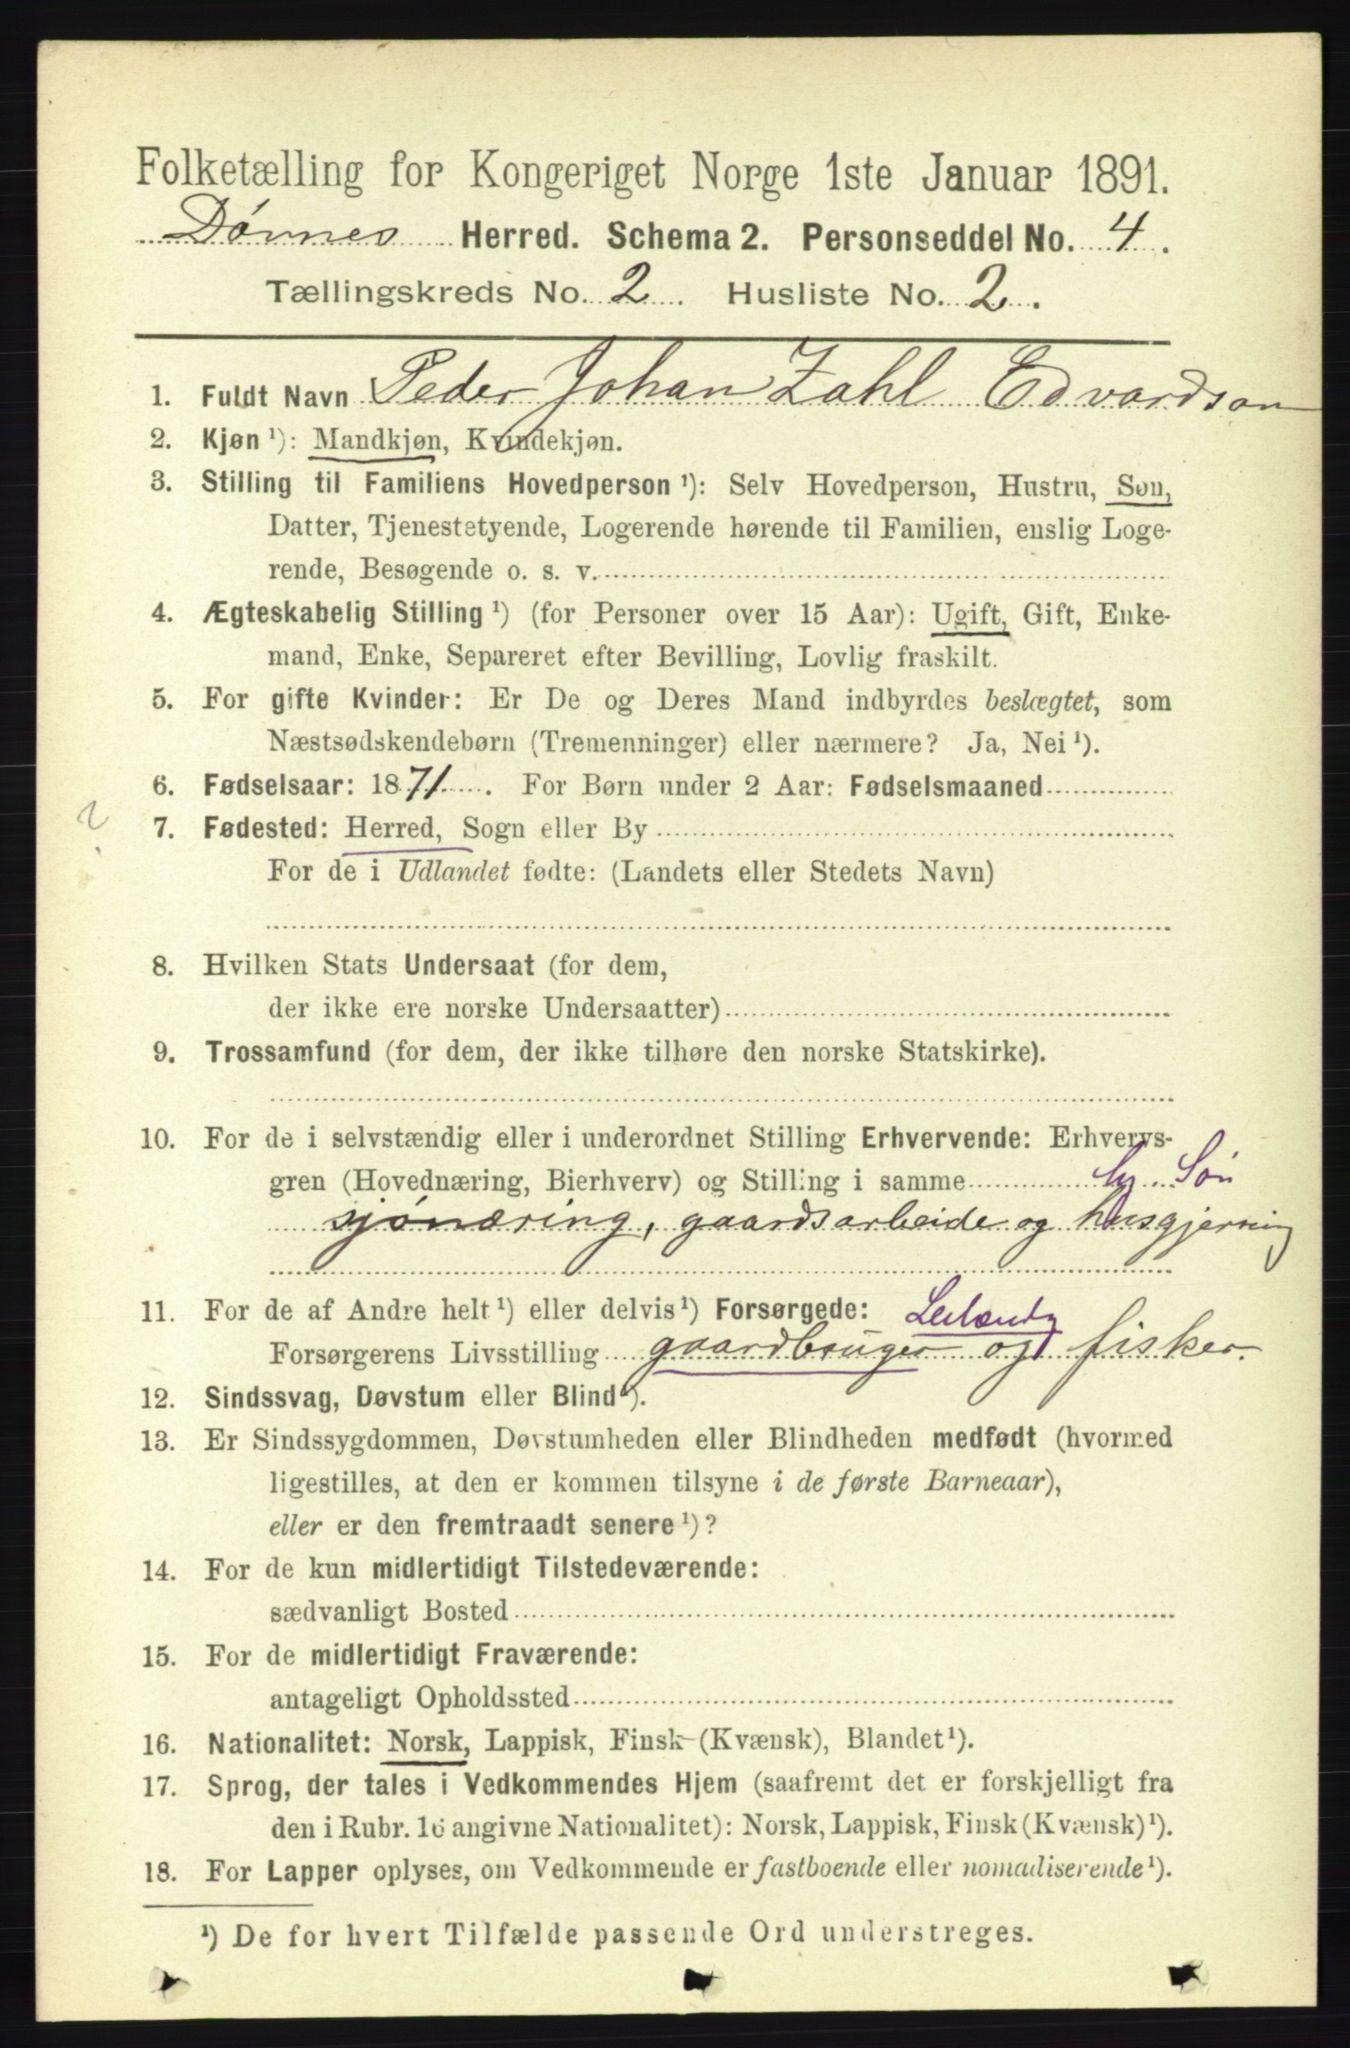 Folketælling for Kongeriget Norge 1ste Januar 1891.
Dønnes Herred. Schema 2. Personseddel No. 4.
Tællingskreds No. 2. Husliste No. 2.
1. Fuldt Navn Peder Johan Zahl Edvardson
2. Kjøn ¹): Mandkjøn, Kvindekjøn.
3. Stilling til Familiens Hovedperson ¹): Selv Hovedperson, Hustru, Søn,
Datter, Tjenestetyende, Logerende hørende til Familien, enslig Loge-
rende, Besøgende o. s. v.
4. Ægteskabelig Stilling ¹) (for Personer over 15 Aar): Ugift, Gift, Enke-
mand, Enke, Separeret efter Bevilling, Lovlig fraskilt.
5. For gifte Kvinder: Er De og Deres Mand indbyrdes beslægtet, som
Næstsødskendebørn (Tremenninger) eller nærmere? Ja, Nei ¹).
6. Fødselsaar: 1871. For Børn under 2 Aar: Fødselsmaaned
?
7. Fødested: Herred, Sogn eller By
For de i Udlandet fødte: (Landets eller Stedets Navn)
8. Hvilken Stats Undersaat (for dem,
der ikke ere norske Undersaatter)
9. Trossamfund (for dem, der ikke tilhøre den norske Statskirke).
10. For de i selvstændig eller i underordnet Stilling Erhvervende: Erhvervs-
gren (Hovednæring, Bierhverv) og Stilling i samme Søn
sjønæring, gaardsarbeide og husgjerning
11. For de af Andre helt ¹) eller delvis ¹) Forsørgede:
Forsørgerens Livsstilling gaardbruger og fisker.
12. Sindssvag, Døvstum eller Blind ¹).
13. Er Sindssygdommen, Døvstumheden eller Blindheden medfødt (hvormed
ligestilles, at den er kommen tilsyne i de første Barneaar),
eller er den fremtraadt senere ¹)?
14. For de kun midlertidigt Tilstedeværende:
sædvanligt Bosted
15. For de midlertidigt Fraværende:
antageligt Opholdssted
16. Nationalitet: Norsk, Lappisk, Finsk (Kvænsk), Blandet ¹).
17. Sprog, der tales i Vedkommendes Hjem (saafremt det er forskjelligt fra
den i Rubr. 16 angivne Nationalitet): Norsk, Lappisk, Finsk (Kvænsk) ¹).
18. For Lapper oplyses, om Vedkommende er fastboende eller nomadiserende ¹).
¹) De for hvert Tilfælde passende Ord understreges.